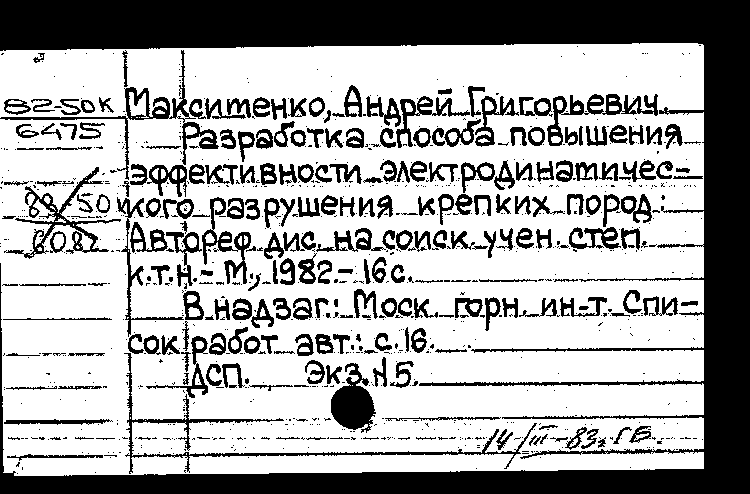 82-50К
6475
Максименко, Андрей Григорьевич.
Разработка способа повышения
эффективности электродинамичес-
кого разрушения крепких пород:
Автореф. дис. на соиск. учен. степ.
к.т.н. - М., 1982. - 16 с.
В надзаг.: Моск. горн. ин-т. Спи-
сок работ авт.: с. 16.
ДСП. Экз. N 5.
83-50к
6082
14/III-83г. ГБ.